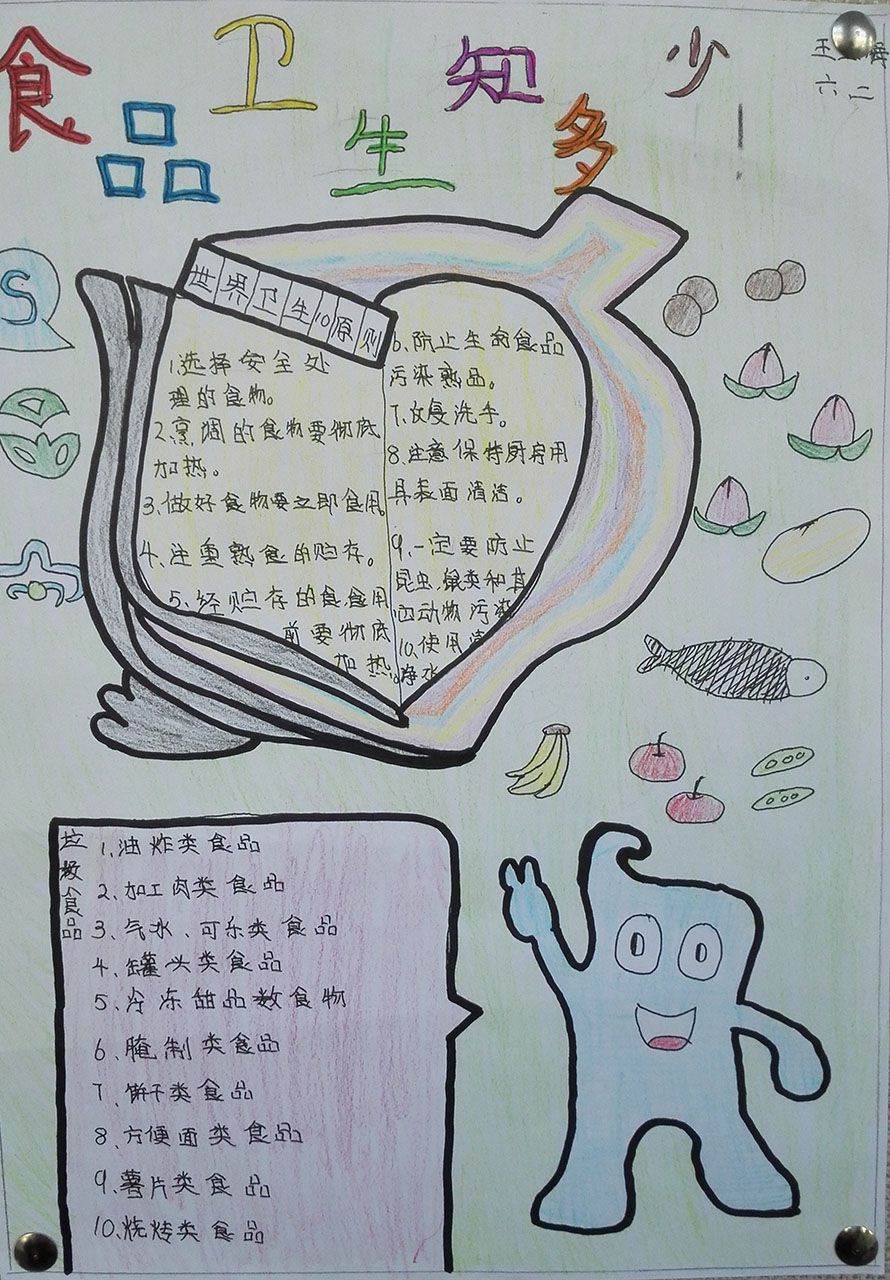 食品卫生知多少!
王
六二
S
世界卫生10原则
1.选择安全处
理的食物。
2.烹调的食物要彻底
加热。
3、做好食物要立即食用。
4、注重熟食的贮存。
5、经贮存的食,食用
前要彻底
加热。
6、防止生的食品
污染熟品。
7、反复洗手。
8、注意保持厨房用
具表面清洁。
9、一定要防止
昆虫,鼠类和其
动物污染
10、使用清
净水
垃圾食品
1、油炸类食品
2、加工肉类食品
3、气水、可乐类食品
4、罐头类食品
5、冷冻甜品数食物
6、腌制类食品
7、饼干类食品
8、方便面类食品
9、薯片类食品
10、烧烤类食品